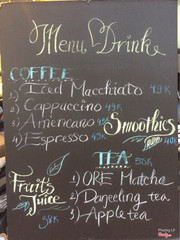 Menu Drink
COFFEE
1) Iced Macchiato 49K
2) Cappuccino 49K
3) Americano 45K
4) Espresso 40K
Smoothies
TEA
1) ORE Matcha
2) Darjeeling tea
3) Apple tea
Fruit
Juice
58K